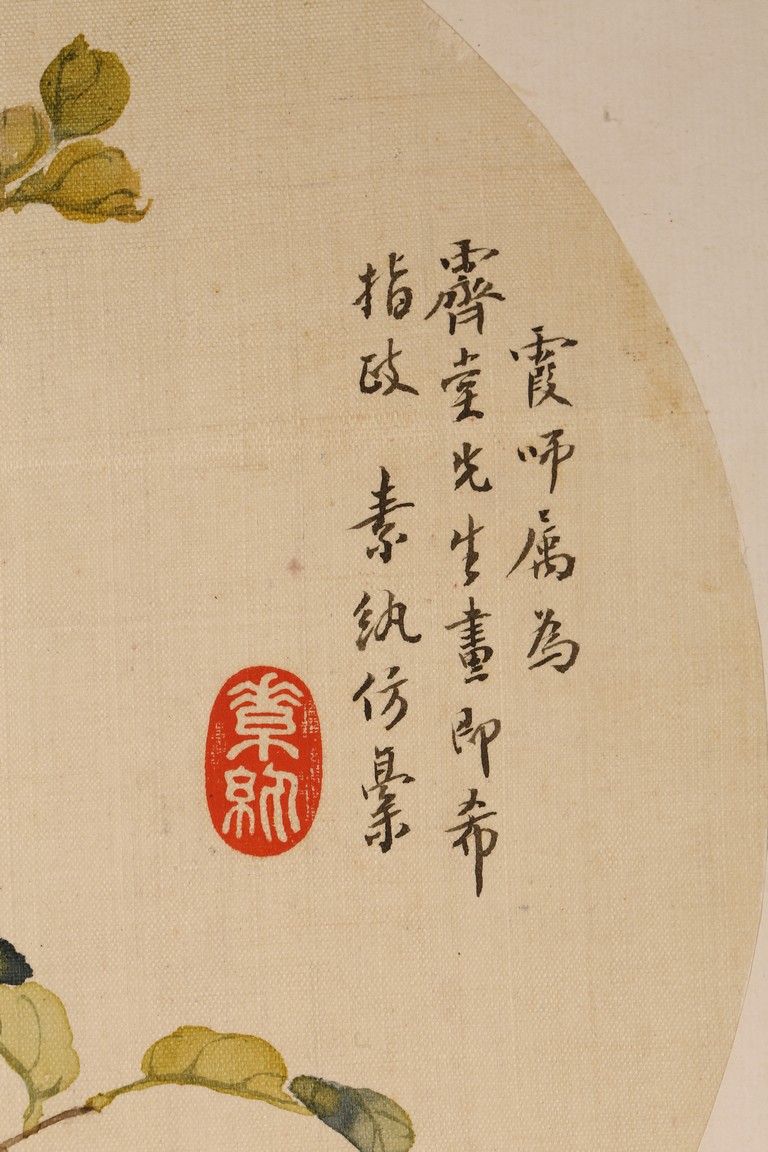 霞師属為
霽堂先生畫即希
指政 素紈仿藁
素紈